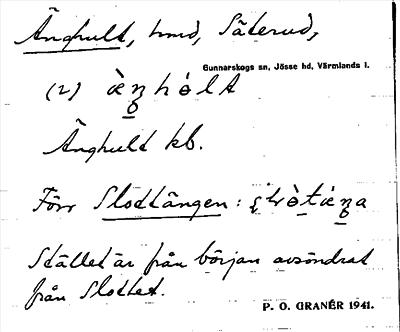 Änghult, hmd, Säterud,
Gunnarskogs sn, Jösse hd, Värmlands l.
(2)
Änghult kb.
Förr Slottängen:
Stället är från början avsöndrat
från Slottet.
P. O. GRANÉR 1941.